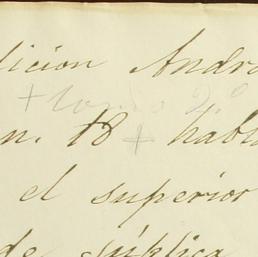 licion Andr
+ tomo 2º
n. 18 + habla
el superior
de súplica